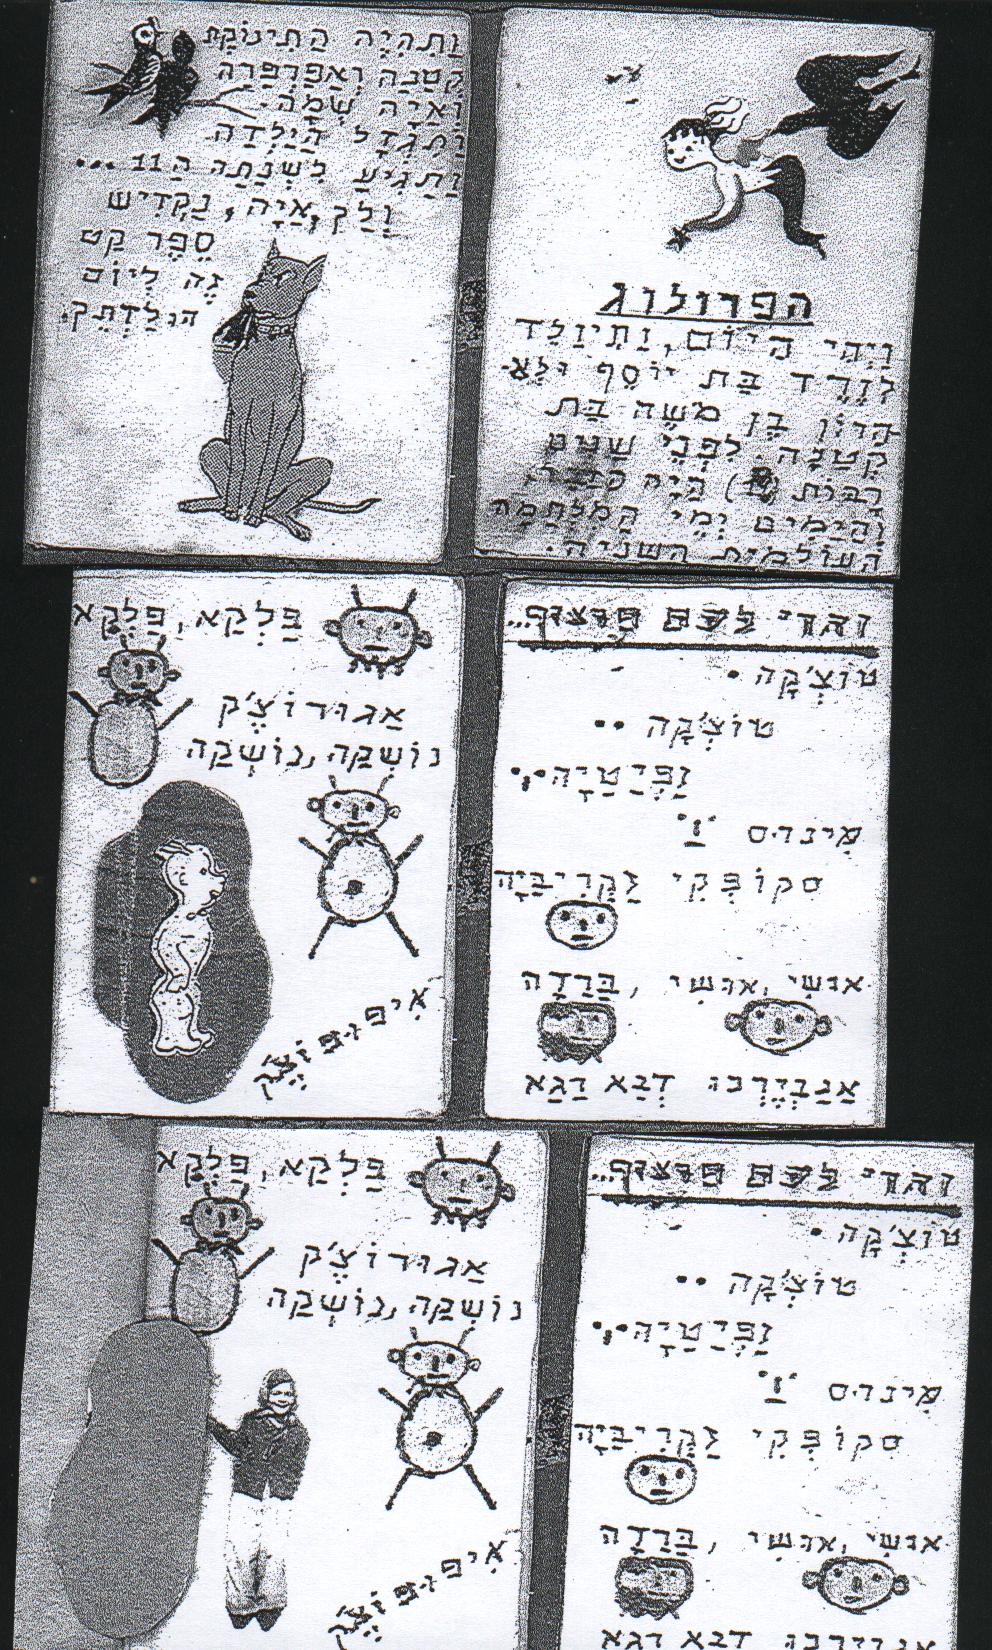 הפרולוג
ויהי היום, ותיולד
בת יוסף ולא-
הרון בן משה בת
קטנה. לפני שנים
רבות היה
והימים ימי המלחמה
העולמית השניה.
ותהיה התינוקת
קטנה ואפרפרה
ואיה שמה.
ותגדל הילדה
ותגיע לשנתה ה 11...
ולך, איה, נקדיש
ספר קט
זה ליום
הולדתך.
והרי לכם פרצוף...
טוצ'קה •
טוצ'קה ••
זפיטיה
מינוס
סקובקי זקריביה
אושי, אושי, ברדה
דבא רגא
פלקא, פלקא
אגורוצ'ק
נושקה, נושקה
והרי לכם פרצוף...
טוצ'קה •
טוצ'קה ••
זפיטיה
מינוס
סקובקי זקריביה
אושי, אושי, ברדה
דבא רגא
פלקא, פלקא
אגורוצ'ק
נושקה, נושקה